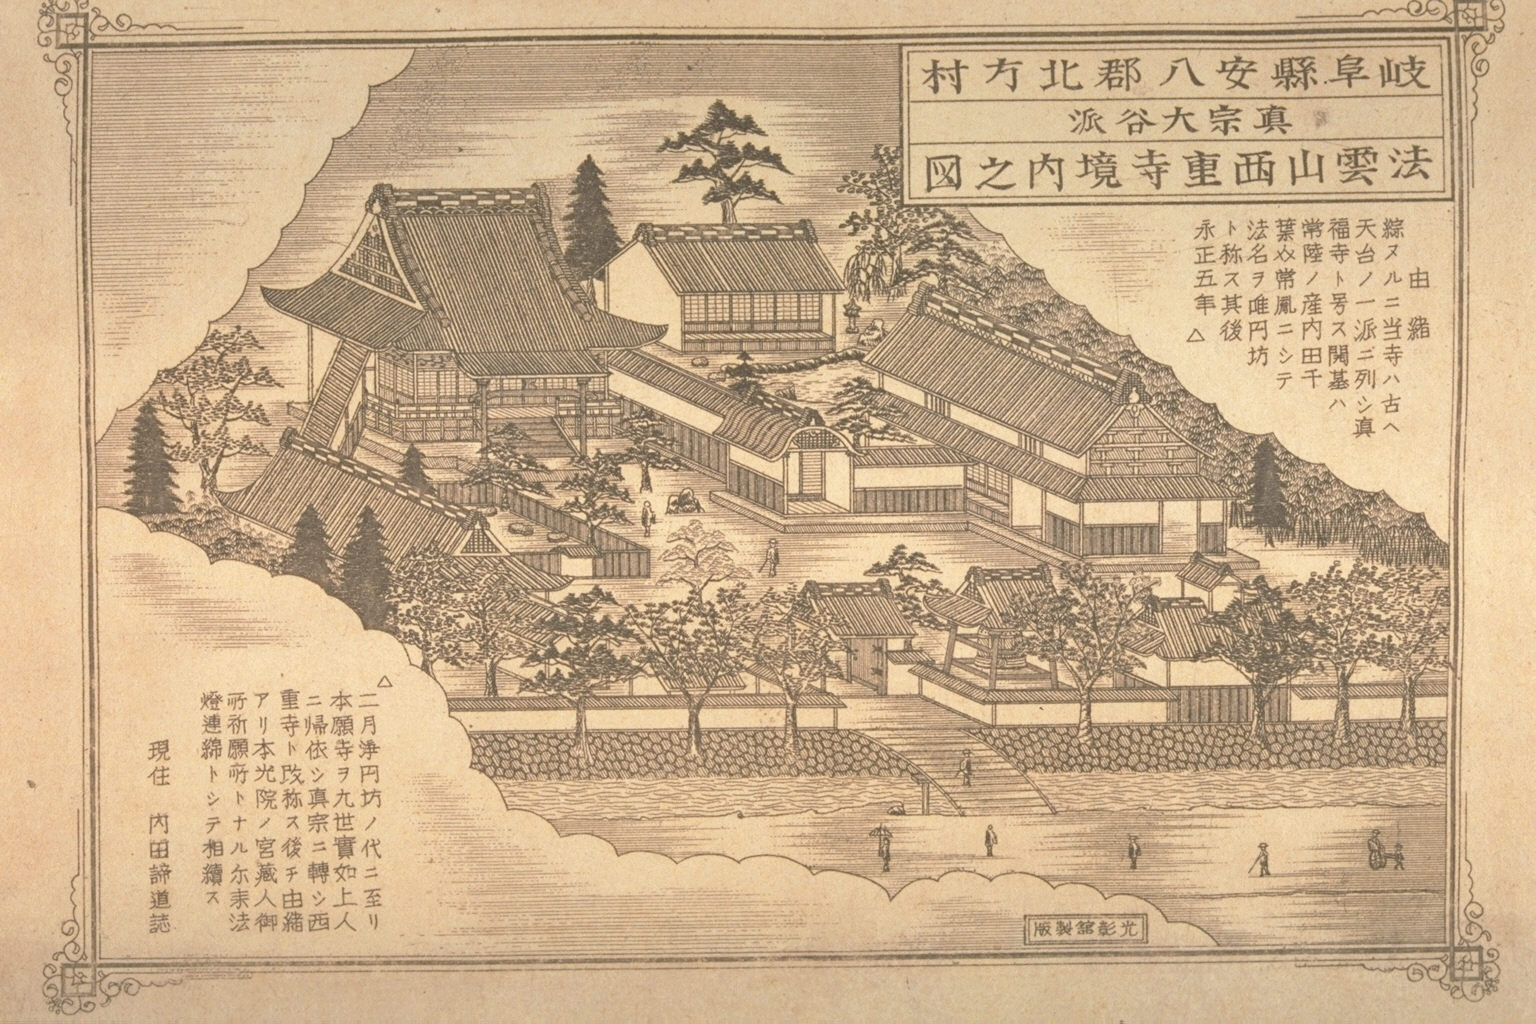 岐阜縣安八郡北方村
真宗大谷派
法雲山西重寺境内之図
由緒
綜ヌルニ当寺ハ古ヘ
天台ノ一派ニ列シ真
福寺ト号ス開基ハ
常陸ノ産内田千
葉𠆢常胤ニシテ
法名ヲ唯円坊
ト称ス其後
永正五年 △
△
二月浄円坊ノ代ニ至リ
本願寺ヲ九世實如上人
ニ帰依シ真宗ニ轉シ西
重寺ト改称ス後チ由緒
アリ本光院ノ宮蔵人御
所祈願所トナル尓来法
燈連綿トシテ相續ス
現住 内田諦道誌
光彰舘製版